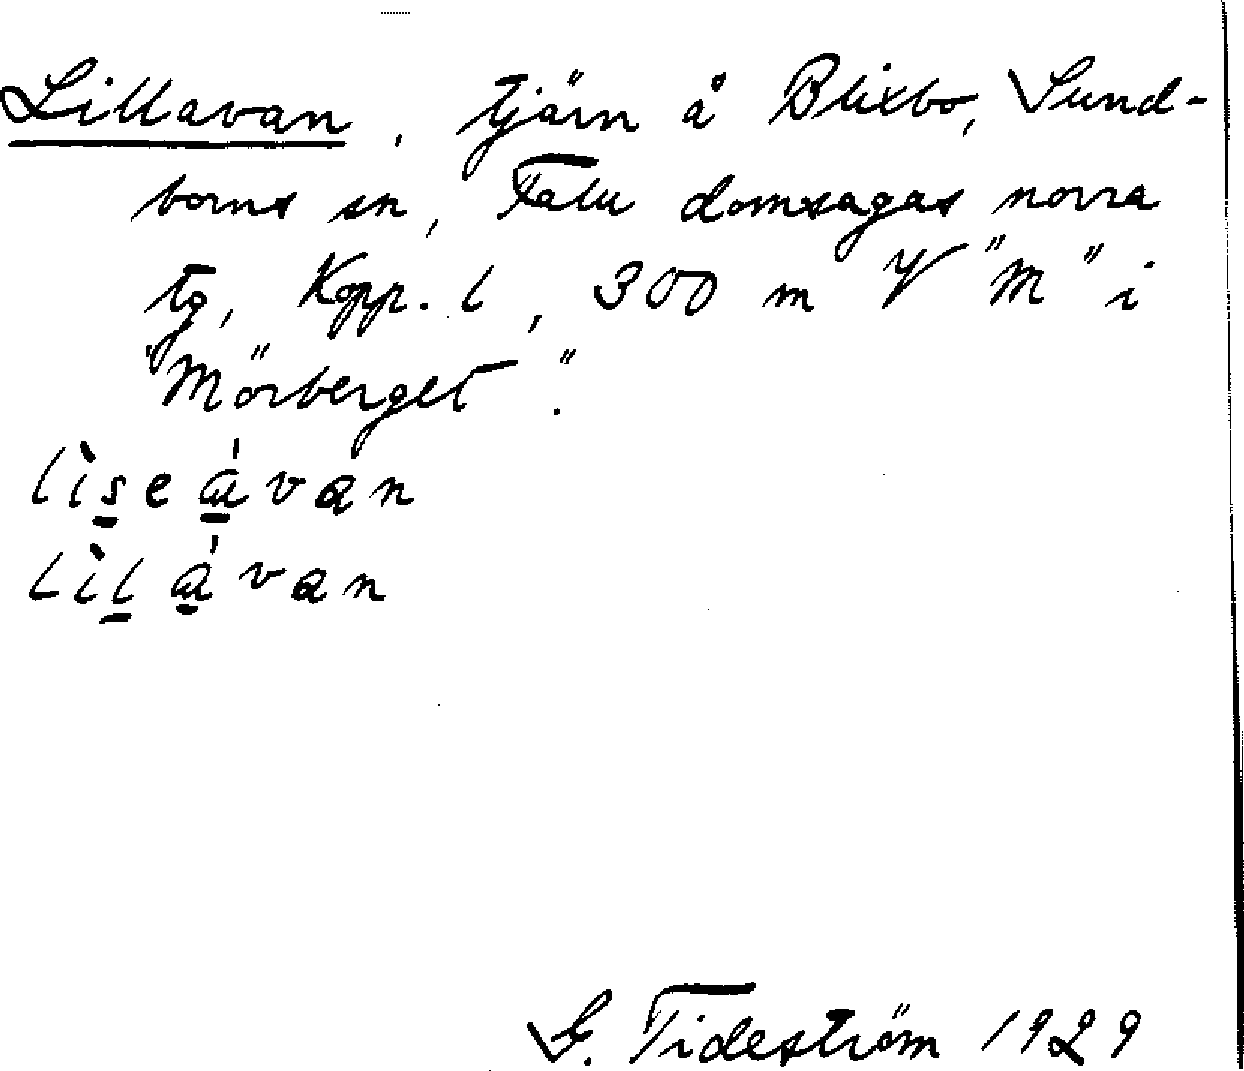 Lillavan, tjärn å Blixbo, Sund-
borns sn, Falu domsagas norra
tg, Kopp. l, 300 m V "M" i
"Mörberget".
lìseávan
lìlávan
G. Tideström 1929